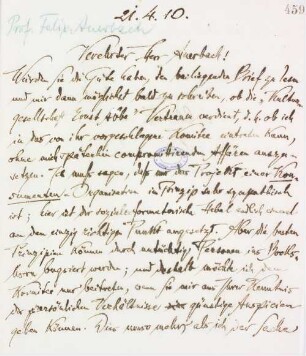 21. 4. 10.
459
Prof. Felix Auerbach
Verehrter Herr Auerbach!
Würden Sie die Güte haben, den beiliegenden Brief zu lesen
und mir dann möglichst bald zu schreiben, ob die "Kultur
gesellschaft Ernst Abbe" Vertrauen verdient, d. h. ob ich
in das von ihr vorgeschlagene Komitee eintreten kann,
ohne mich peinlichen compromittierenden Affären auszu-
setzen. Ich muß sagen, daß mir das Projekt einer Kon-
sumenten-Organisation im Prinzip sehr sympathisch
ist; hier ist der sozialreformatorische Hebel endlich einmal
an den einzig richtigen Punkt angesetzt. Aber die besten
Prinzipien können durch untüchtige Personen ins Bocks-
horn bugsiert werden; und deshalb möchte ich dem
Komitee nur beitreten, wenn Sie mir aus Ihrer Kenntnis
der persönlichen Verhältnisse günstige Auspizien
geben können. Denn mehr als ich hier Sache